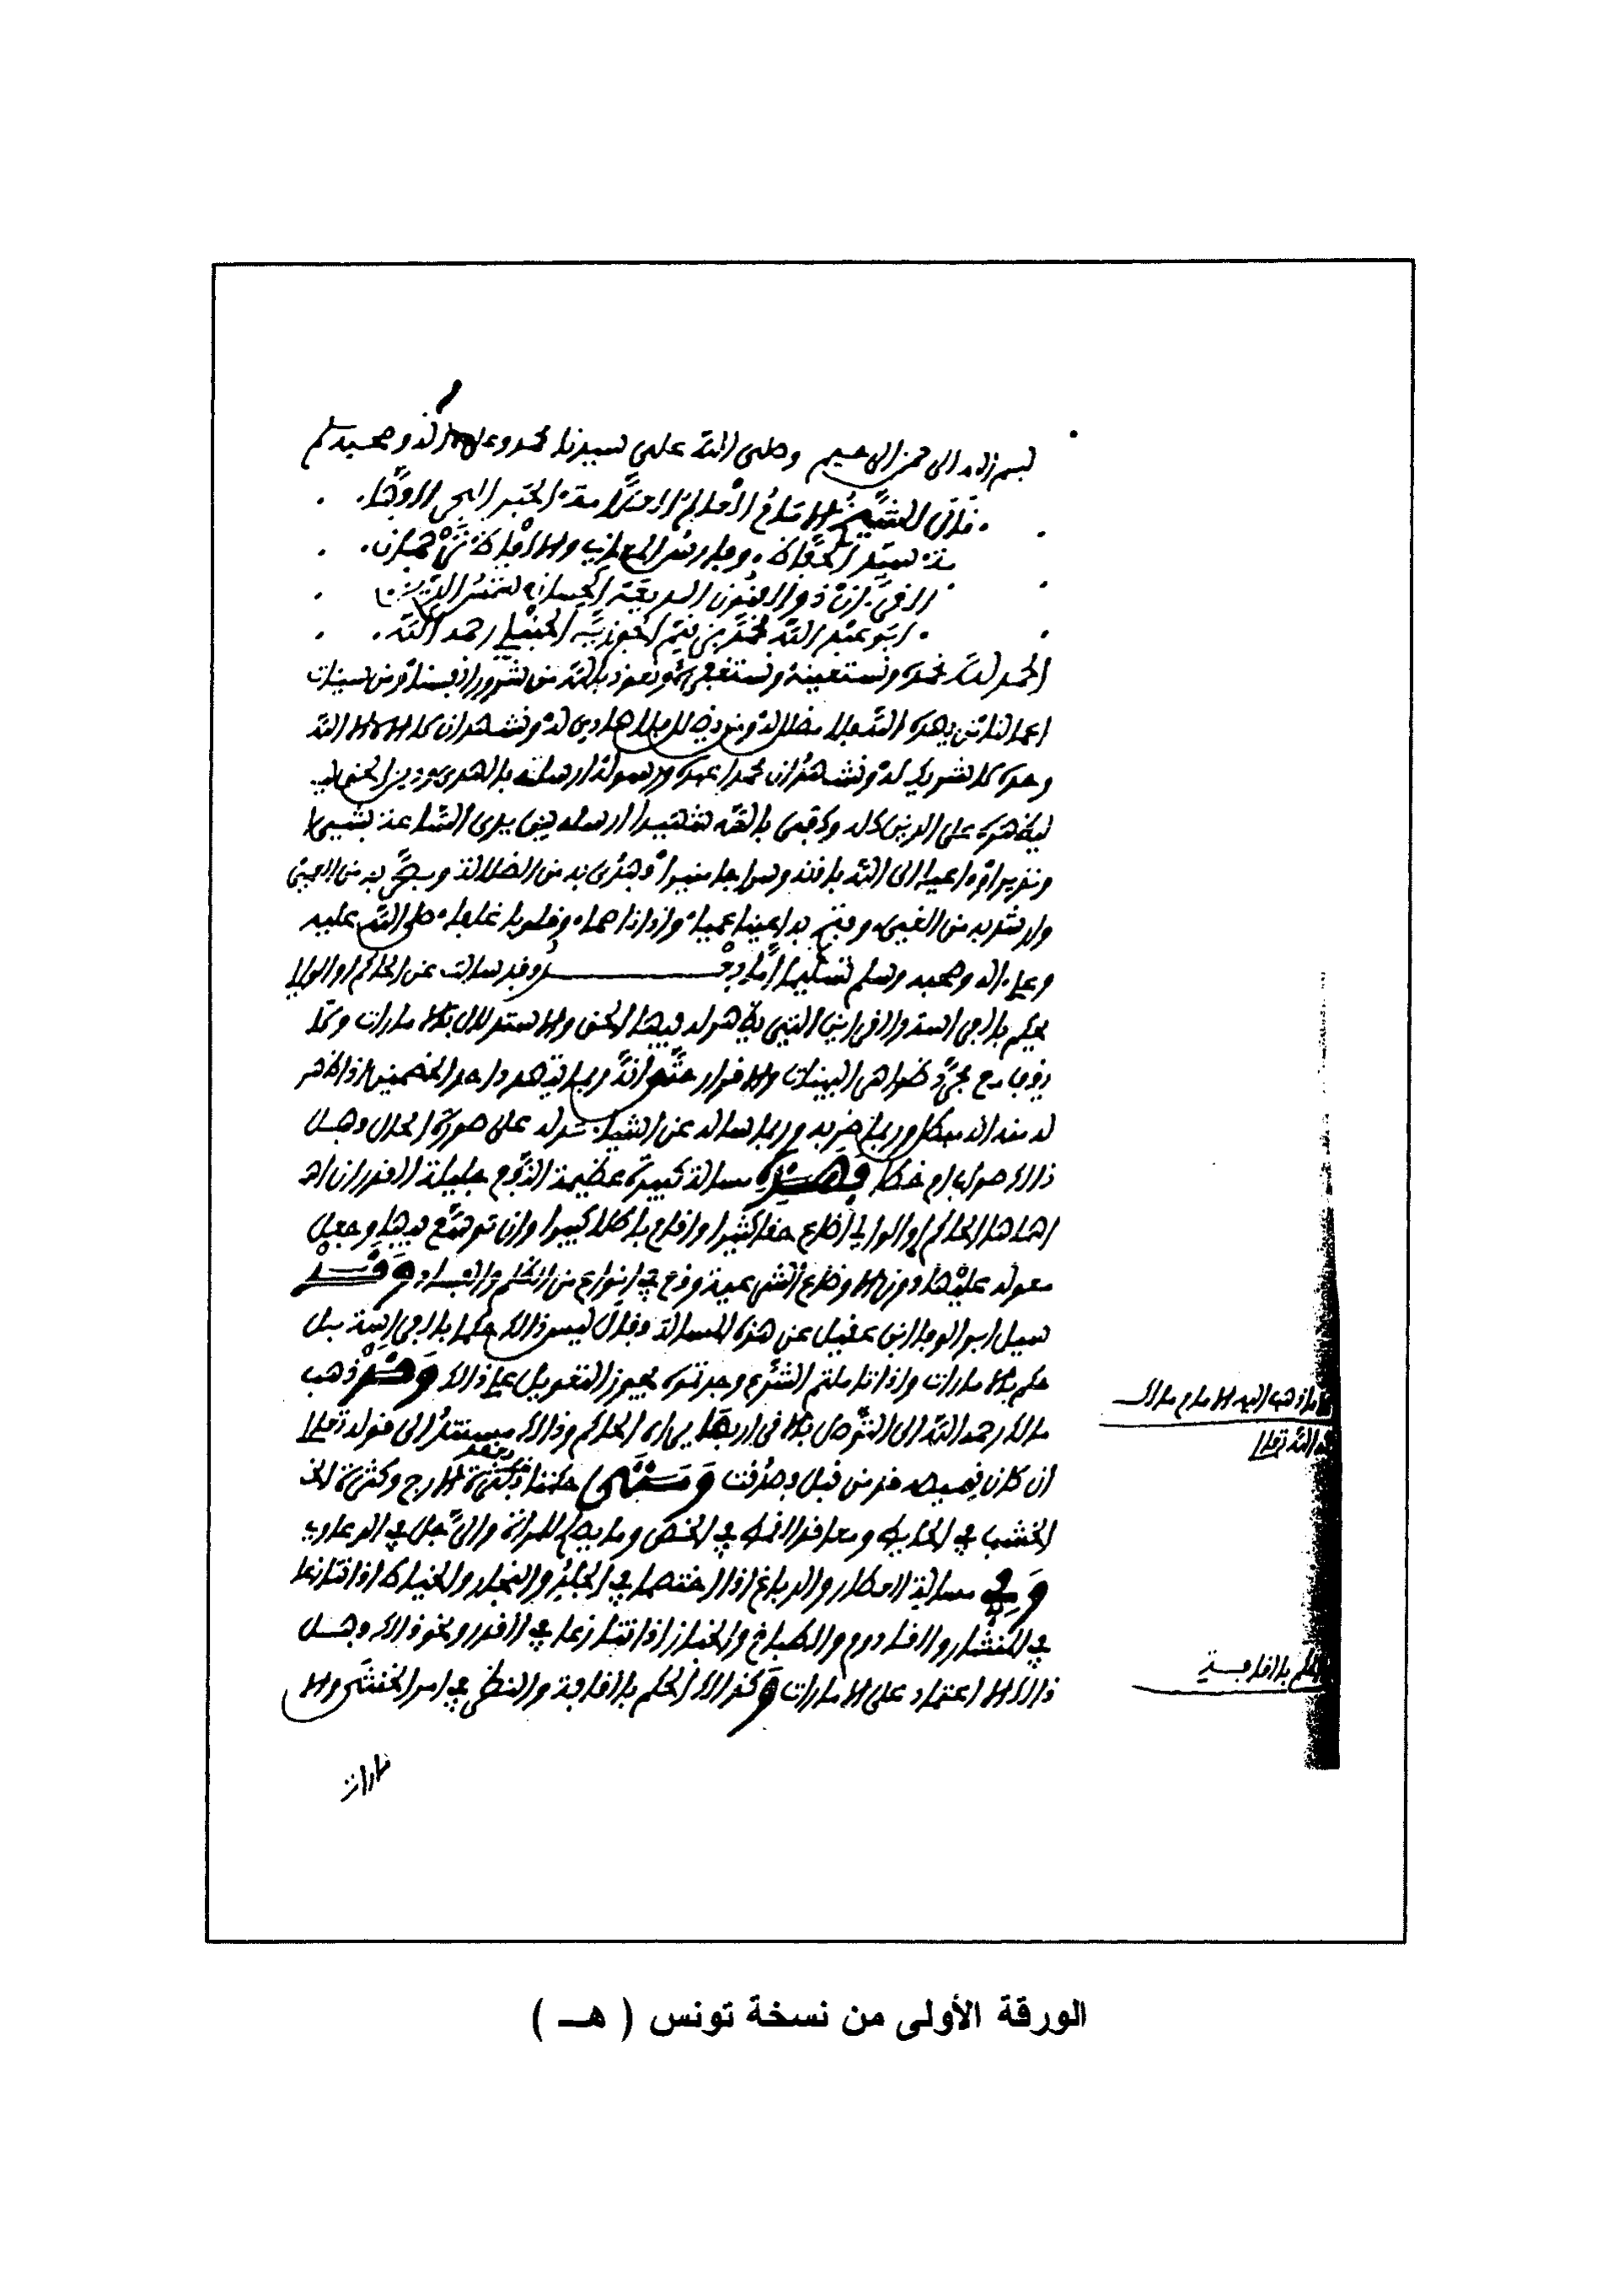 بسم الله الرحمن الرحيم وصلى الله على سيدنا محمد وعلى آله وصحبه وسلم
قال الشيخ الإمام العالم العلامة الحبر البحر
سيد الحفاظ وفارس المعاني والألفاظ ترجمان
القرءان ذو الفنون البديعة الحسان شمس الدين
ابو عبد الله محمد بن قيم الجوزية الحنبلي رحمه الله
الحمد لله نحمده ونستعينه ونستغفره ونعوذ بالله من شرور انفسنا ومن سيئات
اعمالنا من يهده الله فلا مضل له ومن يضلل فلا هادي له ونشهد ان لا اله الا الله
وحده لا شريك له ونشهد ان محمدا عبده ورسوله ارسله بالهدى ودين الحق
ليظهره على الدين كله وكفى بالله شهيدا ارسله بين يدي الساعة بشيرا
ونذيرا وداعيا الى الله باذنه وسراجا منيرا وهدى به من الضلالة وبصر به من العمى
وارشد به من الغي وفتح به اعينا عميا وءاذانا صما وقلوبا غلفا صلى الله عليه
وعلى اله وصحبه وسلم تسليما اما بعد وقد سالت عن الحاكم او الوالي
يحكم بالفراسة والقراين التي يظهر له فيها الحق والاستدلال بالامارات ولا
يقف مع مجرد ظواهر البينات والاقرار حتى انه ربما يتهدد احد الخصمين اذا ظهر
له منه انه مبطل وربما ضربه وربما ساله عن اشياء تدله على صورة الحال وهل
ذالك صواب ام خطا فهذه مسالة كبيرة عظيمة النفع جليلة القدر ان اهـ
اهملها الحاكم او الوالي اضاع حقا كثيرا واقام باطلا كبيرا وان توسع فيها وجعل
معوله عليها دون الاوضاع الشرعية وقع في انواع من الظلم والفساد وقد
سيل ابو الوفا ابن عقيل عن هذه المسالة فقال ليس ذالك حكما بالفراسة بل
حكم بالامارات واذا تاملتم الشرع وجدتموه يجوز التعويل على ذالك وقد ذهب
مالك رحمه الله الى التوصل بالاقرار بما يراه الحاكم وذالك مستندا الى قوله تعالى
ان كان قميصه قد من قبل فصدقت ومتى حكمنا بعقد الازج وكثرة الخـ
الخشب في الحايط ومعاقد القمط في الخص وما يصلح للمرأة والرجل في الدعاوي
وفي مسالة العطار والدباغ اذا اختصما في الجلد والنجار والخياط اذا تنازعا
في المنشار والقدوم والطباخ والخباز اذا تنازعا في القدر ونحو ذالك وهل
ذالك الا اعتماد على الامارات وكذالك الحكم بالقافة والنظر في امر الخنثى والا
مارات
ما ذهب اليه الامام مالك
الله تعالى
الحكم بالقافة
الورقة الأولى من نسخة تونس ( هـ )